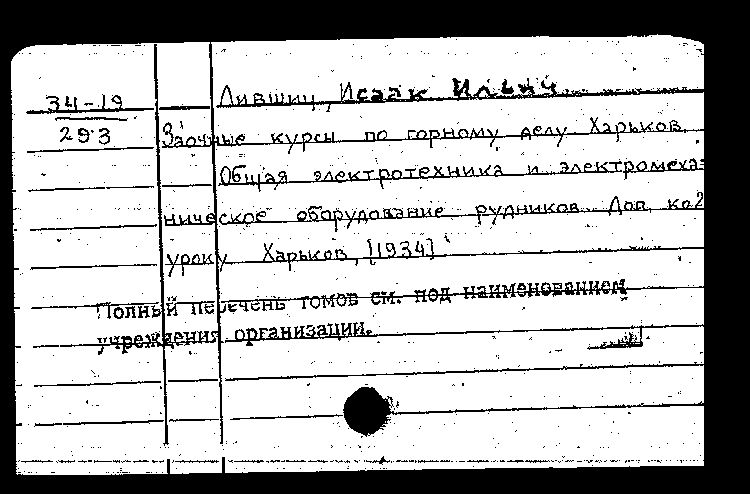 34-19
293
Лившиц, Исаак Ильич
Заочные курсы по горному делу Харьков.
Общая электротехника и электромеха-
ническое оборудование рудников. Доп. ко 2
уроку Харьков, [1934]
Полный перечень томов см. под наименованием
учреждения организации.